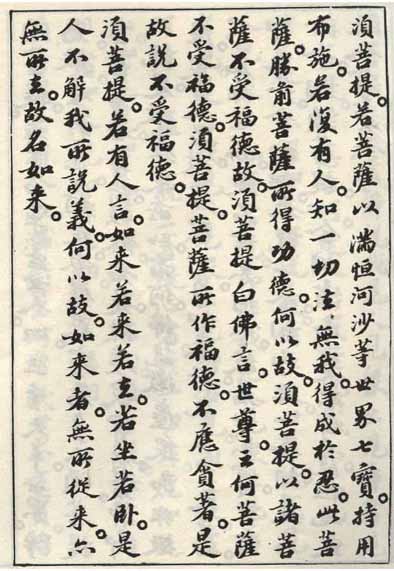 須菩提。若菩薩以滿恒河沙等世界七寶。持用
布施。若復有人。知一切法無我。得成於忍。此菩
薩。勝前菩薩所得功德。何以故。須菩提。以諸菩
薩不受福德故。須菩提白佛言。世尊。云何菩薩
不受福德。須菩提。菩薩所作福德。不應貪著。是
故說不受福德。
須菩提。若有人言。如来若来若去。若坐若卧。是
人不解我所說義。何以故。如来者。無所從来。亦
無所去。故名如来。